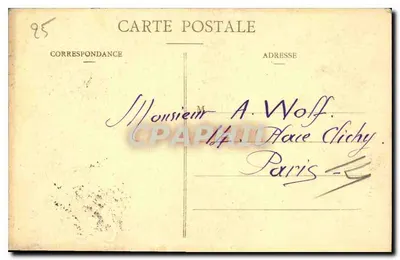 25
CARTE POSTALE
CORRESPONDANCE
ADRESSE
Monsieur M A. Wolf.
14. Place Clichy.
Paris
CPARAMA